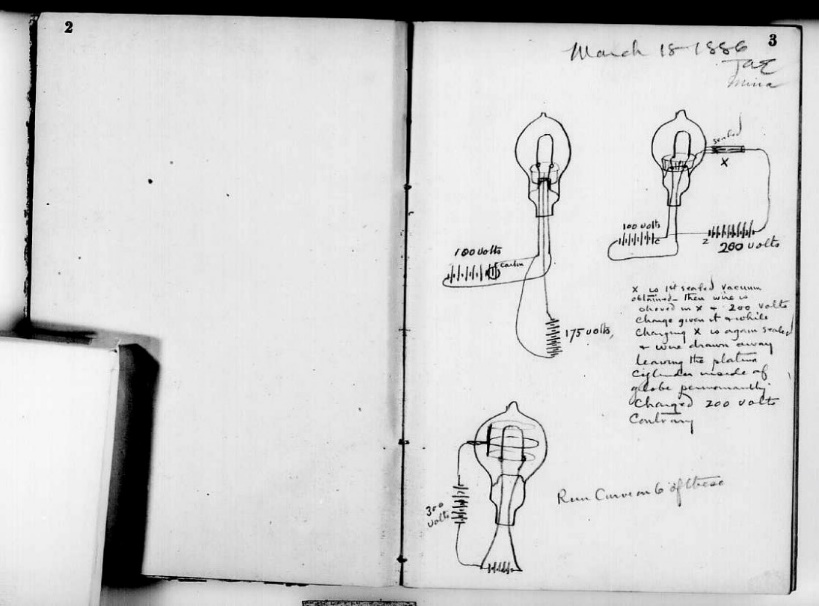 2
3
March 18 1886
TAE
Mina
sealed
X
100 volts
200 volts
2
100 volts
Carbon
175 volts,
X is 1st sealed vacuum
obtained - then wire is
shoved in X + 200 volts
charge given it & while
Charging X is again sealed
& wire drawn away
Leaving the platina
Cylinder inside of
globe permanently
Charged 200 volts
Contrary
300
volts
Run Curve on 6 of these